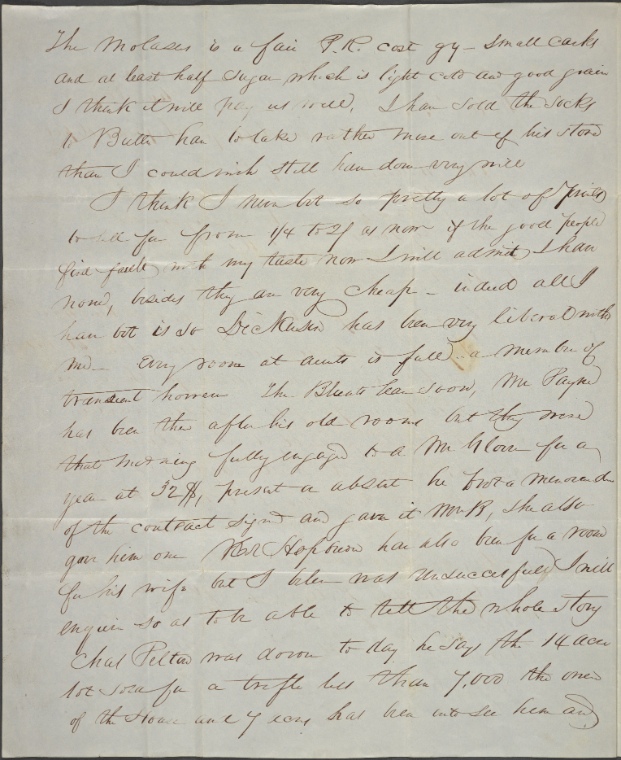 The Molases is a fair P.R. cost 9y - Small casks
and at least half Sugar which is light cold and good grain
I think it will pay us well, I have Sold the Socks
to Butter has to take rather more out of his store
than I could wish Still have done very well
I think I never bot so pretty a lot of Prints
to sell for from 1/4 to 2/ as now if the good people
find fault with my taste now I will admit I have
none, besides they are very cheap - indeed all I
have bot is so Dickenson has been very liberal with
me Evry room at aunts is full a member of
transient however The Blunts leave Soon, Mr Payne
has been there after his old rooms but they were
that morning fully engaged to a Mr Glover for a
year at 32$, present or absent he brot a memorand
of the contract Signd and gave it Mrs R, She also
gave him one Mr Hopson has also been for a room
for his wife but I was unsuccessful, I will
enquire so as to be able to tell the whole Story
Chas Pelton was down to day he says the 14 acre
lot sold for a trifle less than 7,000 the one
of the House and has been into See them and